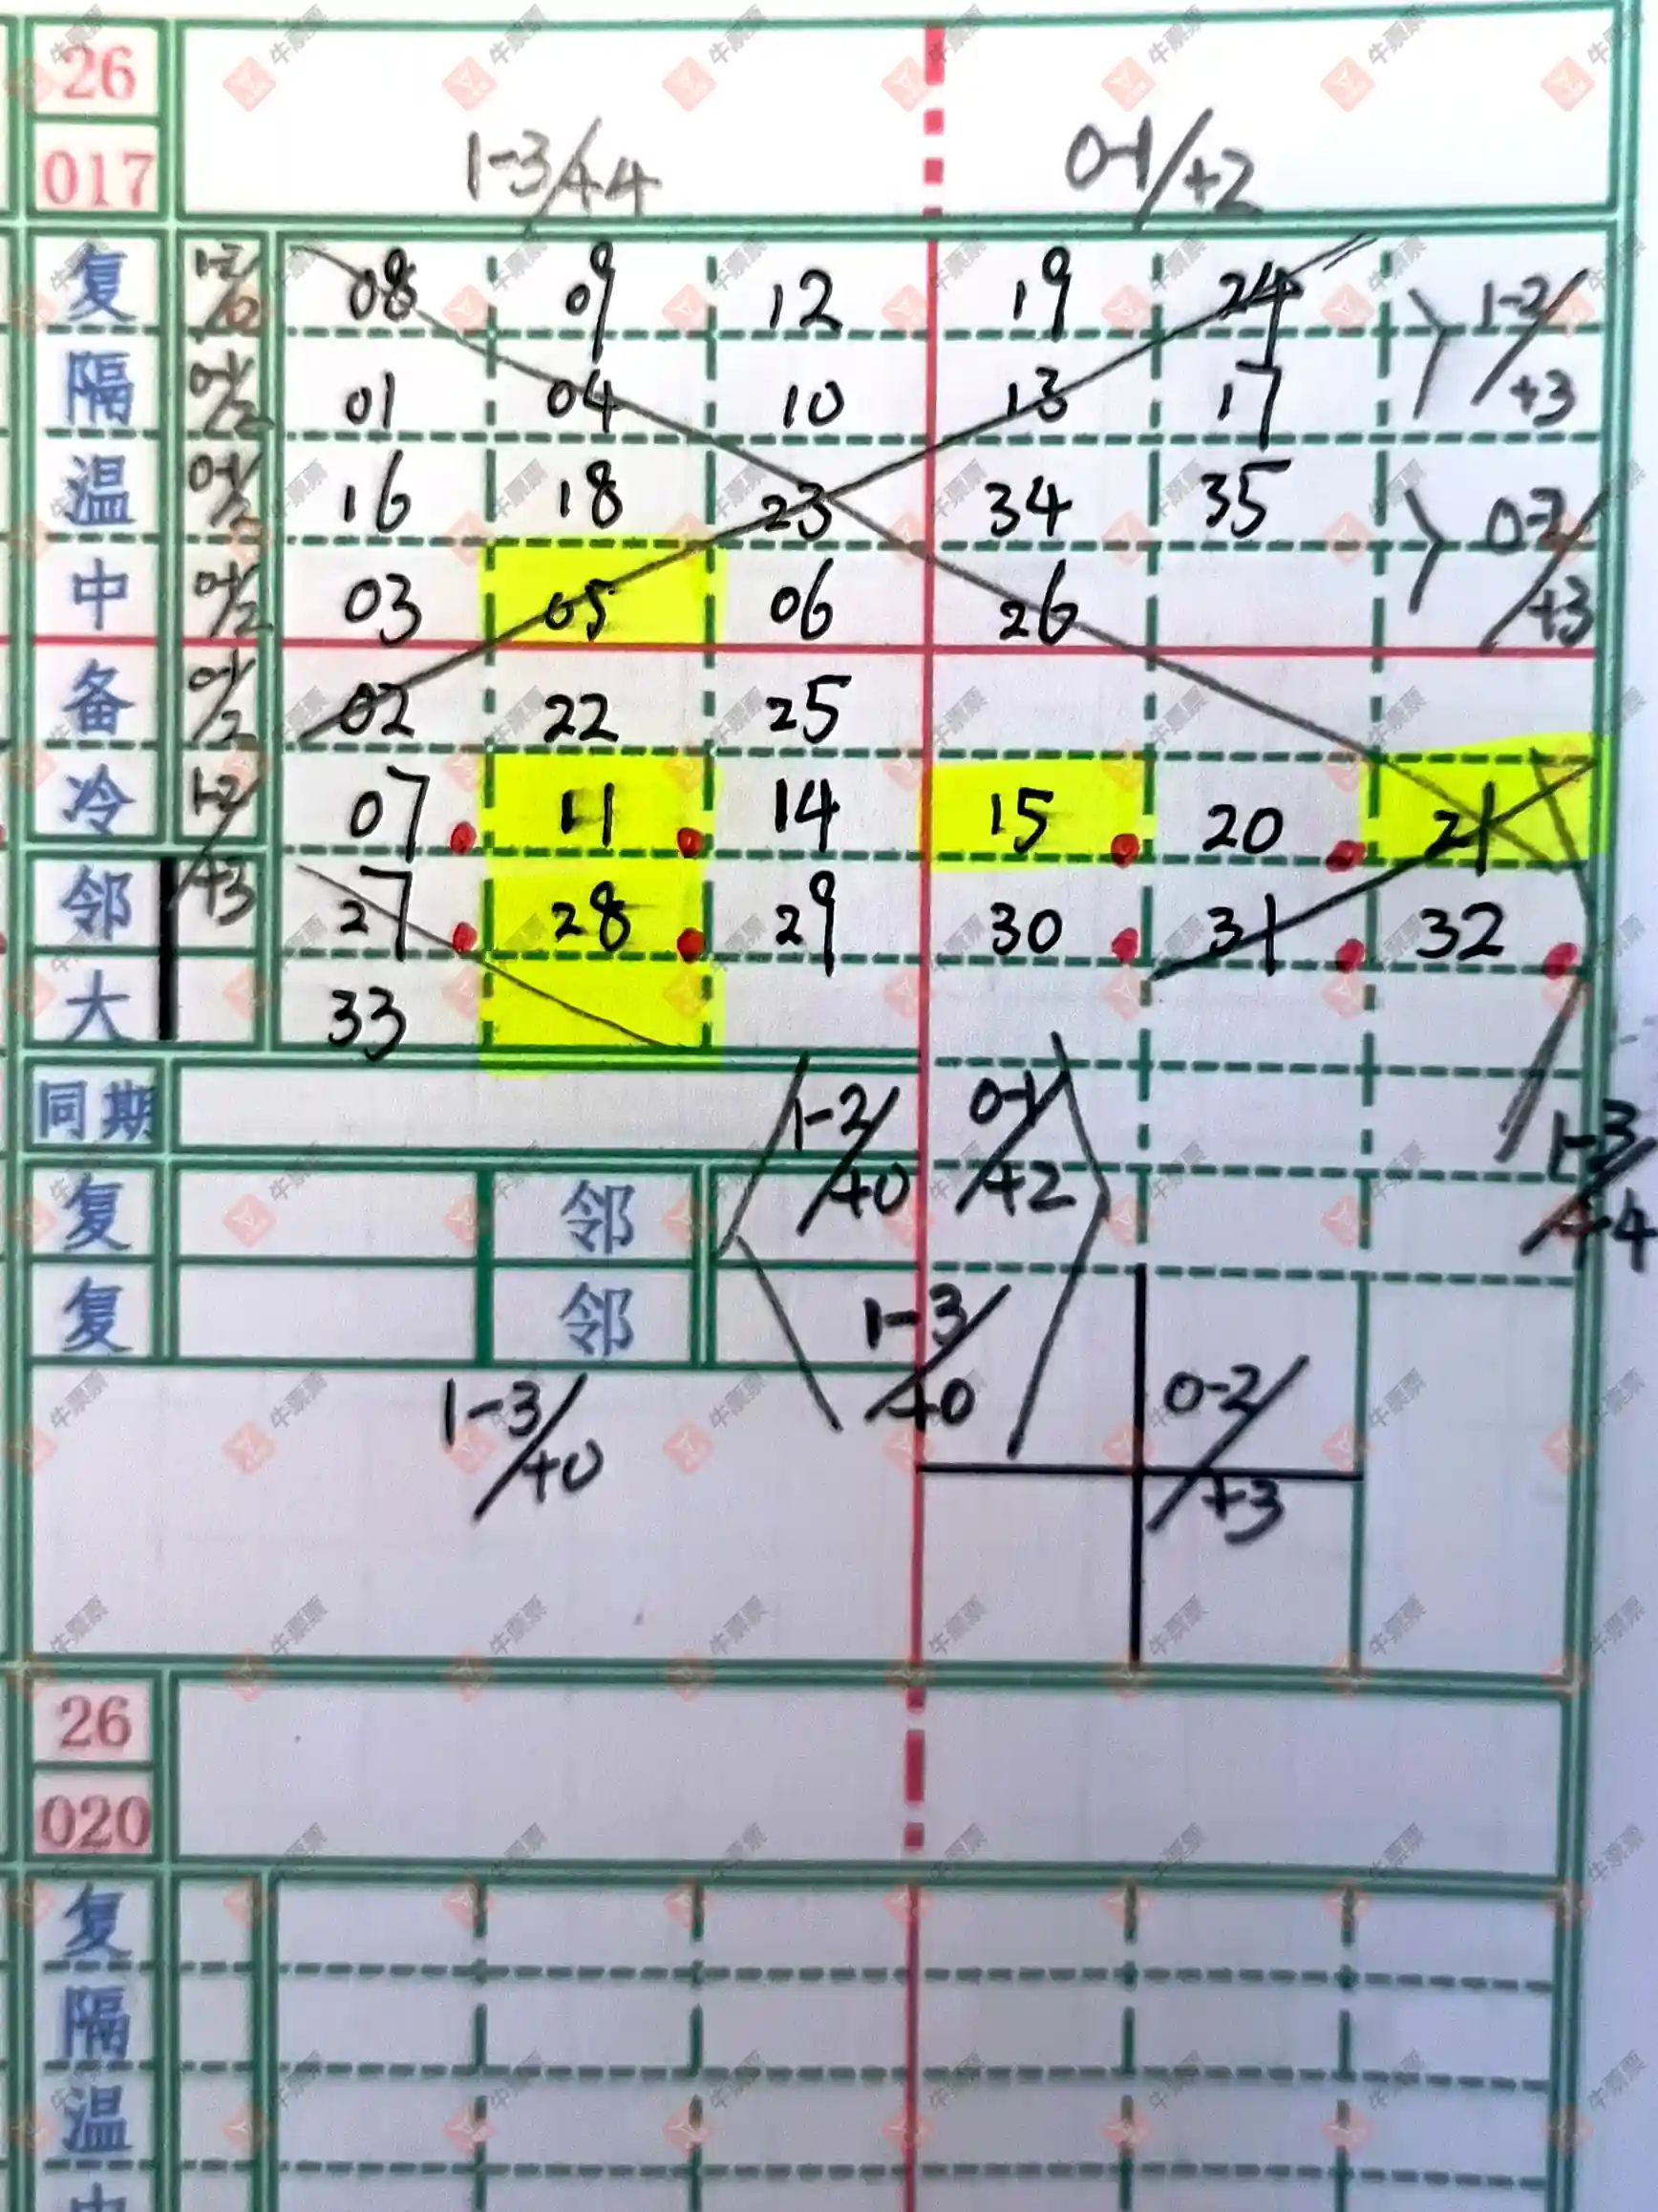 26
017
1-3/+4
0-1/+2
复 1-2/+0 08 09 12 19 24 1-2/+3
隔 0-1/2 01 04 10 13 17
温 0-1/2 16 18 23 34 35 0-2/+3
中 0-1/2 03 05 06 26
备 0-1/2 02 22 25
冷 1-2/+3 07 11 14 15 20 21
邻 27 28 29 30 31 32
大 33
同期 1-2/+0 0-1/+2 1-3/+4
复 邻
复 邻 1-3/+0
1-3/+0 0-2/+3
26
020
复
隔
温
中